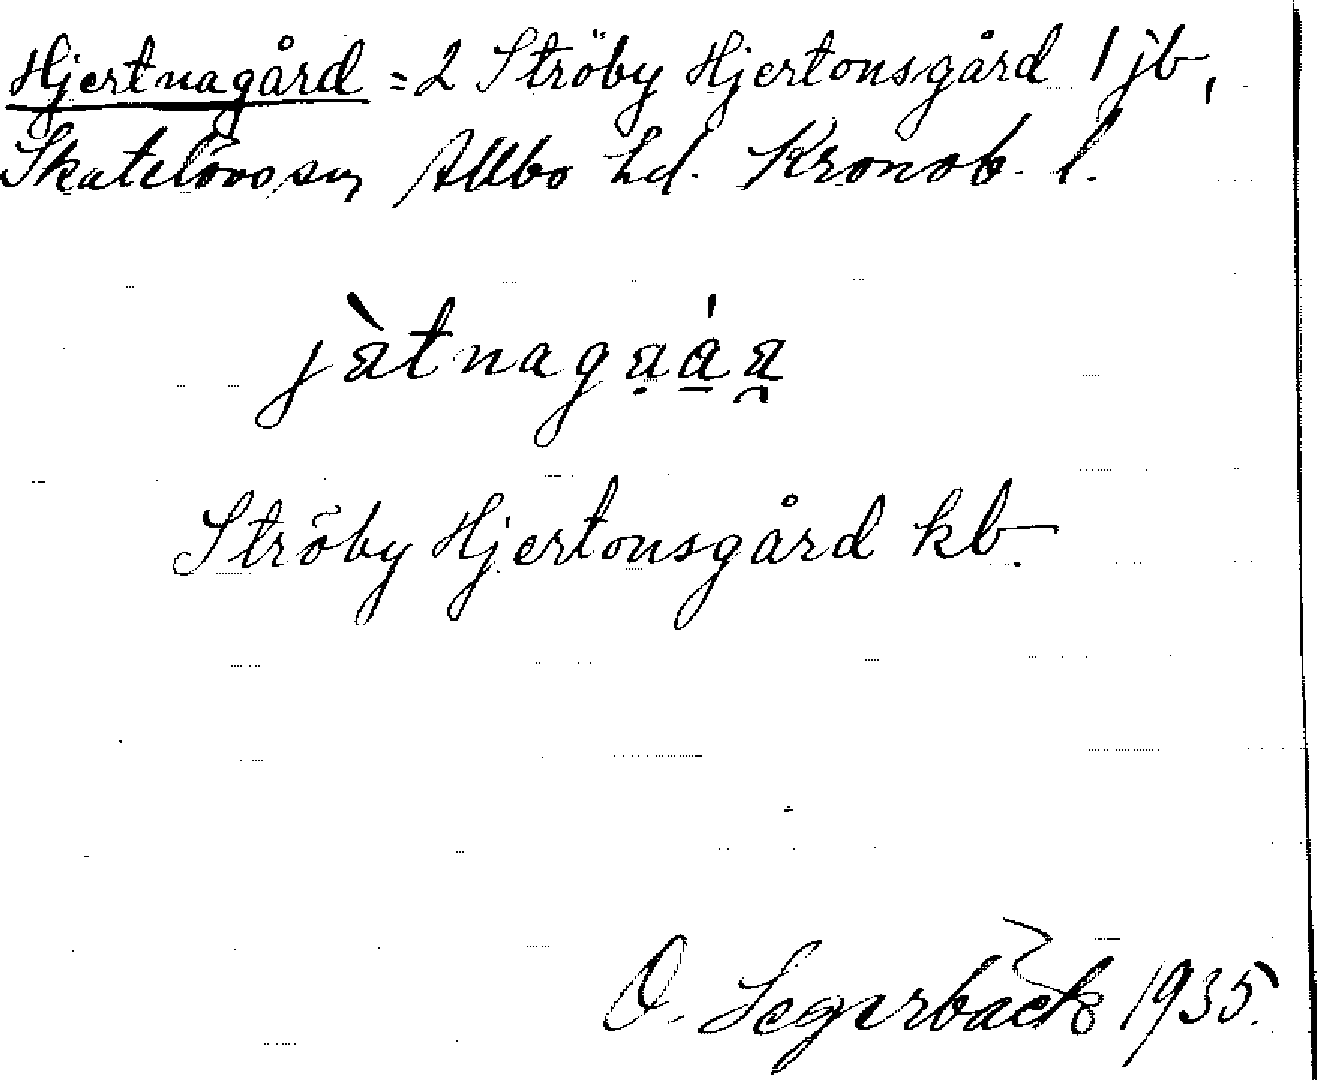 Hjertnagård = 2 Ströby Hjertonsgård 1 jb,
Skatelövs sn, Allbo hd. Kronob. l.
jàtnagạá̱a̯
Ströby Hjertonsgård kb.
O. Segerbäck 1935.